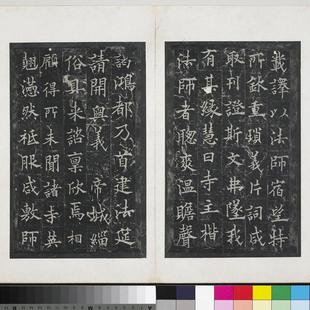 載譯以法師宿望特
所欽重瑣義片詞咸
取刊證斯文弗墜我
有其緣慧日寺主楷
法師者聰爽溫贍聲
藹鴻都乃首建法筵
請開奧義帝城緇
俗具來諮稟欣焉相
顧得所未聞諸英
翹懣然祗服咸敷師